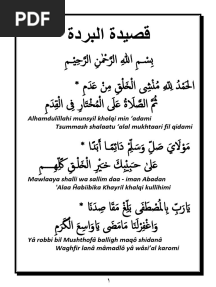 PDF
قصيدة البردة
بِسْمِ اللهِ الرَّحْمٰنِ الرَّحِيْمِ
اَلْحَمْدُ لِلّٰهِ مُنْشِى الْخَلْقِ مِنْ عَدَمِ *
ثُمَّ الصَّلَاةُ عَلَى الْمُخْتَارِ فِى الْقِدَمِ
Alhamdulillahi munsyil kholqi min 'adami
Tsummash shalaatu 'alal mukhtaari fil qidami
مَوْلَايَ صَلِّ وَسَلِّمْ دَائِمًا أَبَدًا *
عَلَىٰ حَبِيْبِكَ خَيْرِ الْخَلْقِ كُلِّهِمِ
Mawlaaya shalli wa sallim daa - iman Abadan
'Alaa Ḥabiibika Khayril kholqi kullihimi
يَارَبِّ بِالْمُصْطَفَى بَلِّغْ مَقَاصِدَنَا *
وَاغْفِرْلَنَا مَامَضَى يَاوَاسِعَ الْكَرَمِ
Yâ rabbi bil Mushthafâ balligh maqô shidanâ
Waghfir lanâ mâmadlâ yâ wâsi'al karomi
١